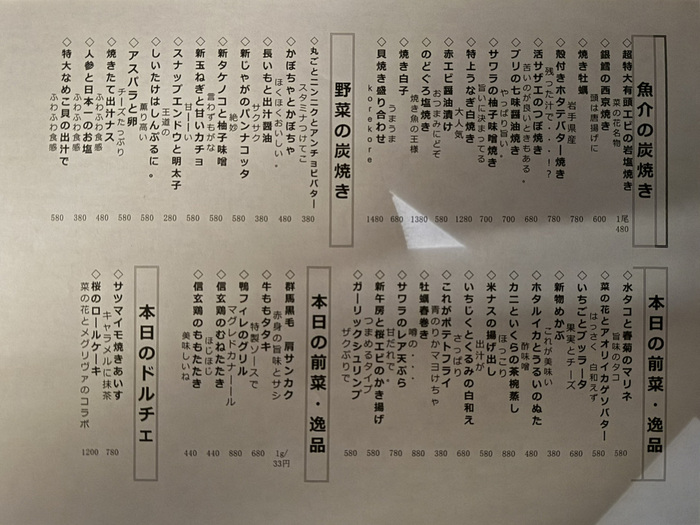 魚介の炭焼き
◇超特大有頭エビの岩塩焼き
菜の花名物
1尾
480
◇銀鱈の西京焼き
頭は唐揚げに
600
◇焼き牡蠣
岩手県産
780
◇殻付きホタテバター焼き
残った汁で・・・！？
780
◇活サザエのつぼ焼き
苦いのが良いときもある。
680
◇ブリの七味醤油焼き
やっぱり旨い。
700
◇サワラの柚子味噌焼き
旨いに決まってる
700
◇特上うなぎ白焼き
大人気
1280
◇赤エビ醤油漬け
おつまみにどぞ
580
◇のどぐろ塩焼き
焼き魚の王様
1380
◇焼き白子
うまうま
680
◇貝焼き盛り合わせ
korekore
1480
野菜の炭焼き
◇丸ごとニンニクとアンチョビバター
スタミナつけてこ
380
◇かぼちゃとかぼちゃ
ほくほくおいしい。
480
◇長いもと出汁醤油
サクサク
380
◇新じゃがのパンナコッタ
絶妙
580
◇新タケノコと柚子味噌
言わずもがな
580
◇新玉ねぎと甘いカチョ
甘ーーい
580
◇スナップエンドウと明太子
王道の
580
◇しいたけはしんぷるに。
薫り高い
280
◇アスパラと卵
チーズたっぷり
580
◇焼きたて出汁ナス
ふわふわ食感
480
◇人参と日本一のお塩
ふわふわ食感
380
◇特大なめこ貝の出汁で
ふわふわ食感
580
本日の前菜・逸品
◇水タコと春菊のマリネ
旨味のタコ
580
◇菜の花とアオリイカゲソバター
はっさく　白和えず
580
◇いちごとブッラータ
果実とチーズ
680
◇新物めかぶ
これが美味い
380
◇ホタルイカとうるいのぬた
酢味噌
480
◇カニといくらの茶碗蒸し
ほっこり
680
◇米ナスの揚げ出し
出汁が
580
◇いちじくとくるみの白和え
さっぱり
680
◇これがポテトフライ
青のりかマヨけちゃ
380
◇牡蠣春巻き
噂の・・・
880
◇サワラのレア天ぷら
甘だれで
780
◇新午房と桜エビのかき揚げ
つまめるタイプ
580
◇ガーリックシュリンプ
ザクぷりで
580
本日の前菜・逸品
◇群馬黒毛　肩サンカク
赤身の旨味とサシ
1g/
33円
◇牛ももタタキ
特製ソースで
680
◇鴨フィレのグリル
マグレドカナーール
880
◇信玄鶏のむねたたき
ほじほじ
440
◇信玄鶏のももたたき
美味しいね
440
本日のドルチェ
◇サツマイモ焼きあいす
キャラメルに抹茶
780
◇桜のロールケーキ
菜の花とメグリヴァのコラボ
1200